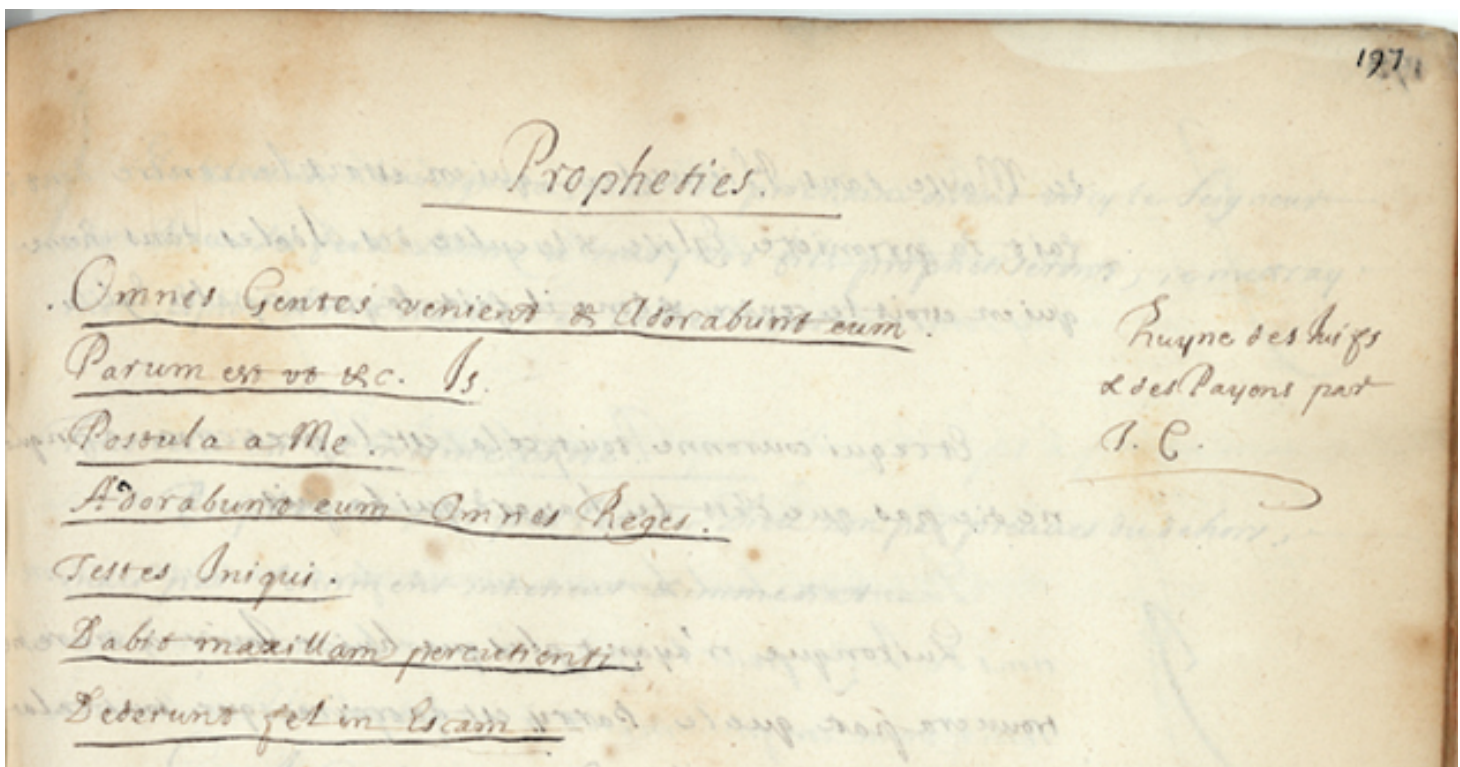 197
Propheties.
. Omnes Gentes venient & Adorabunt eum.
Parum est vt &c. Is.
Postula a Me.
Adorabunt eum Omnes Reges.
Testes Iniqui.
Dabit maxillam percutienti.
Dederunt fel in Escam.
Ruyne des Juifs
& des Payens par
J. C.